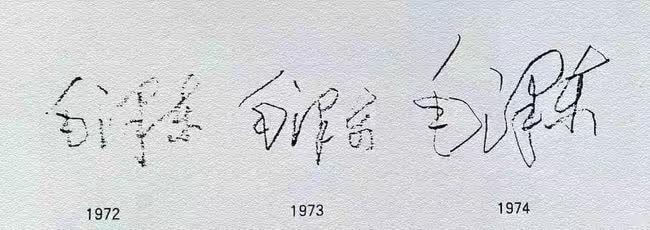 毛泽东 毛泽东 毛泽东
1972 1973 1974